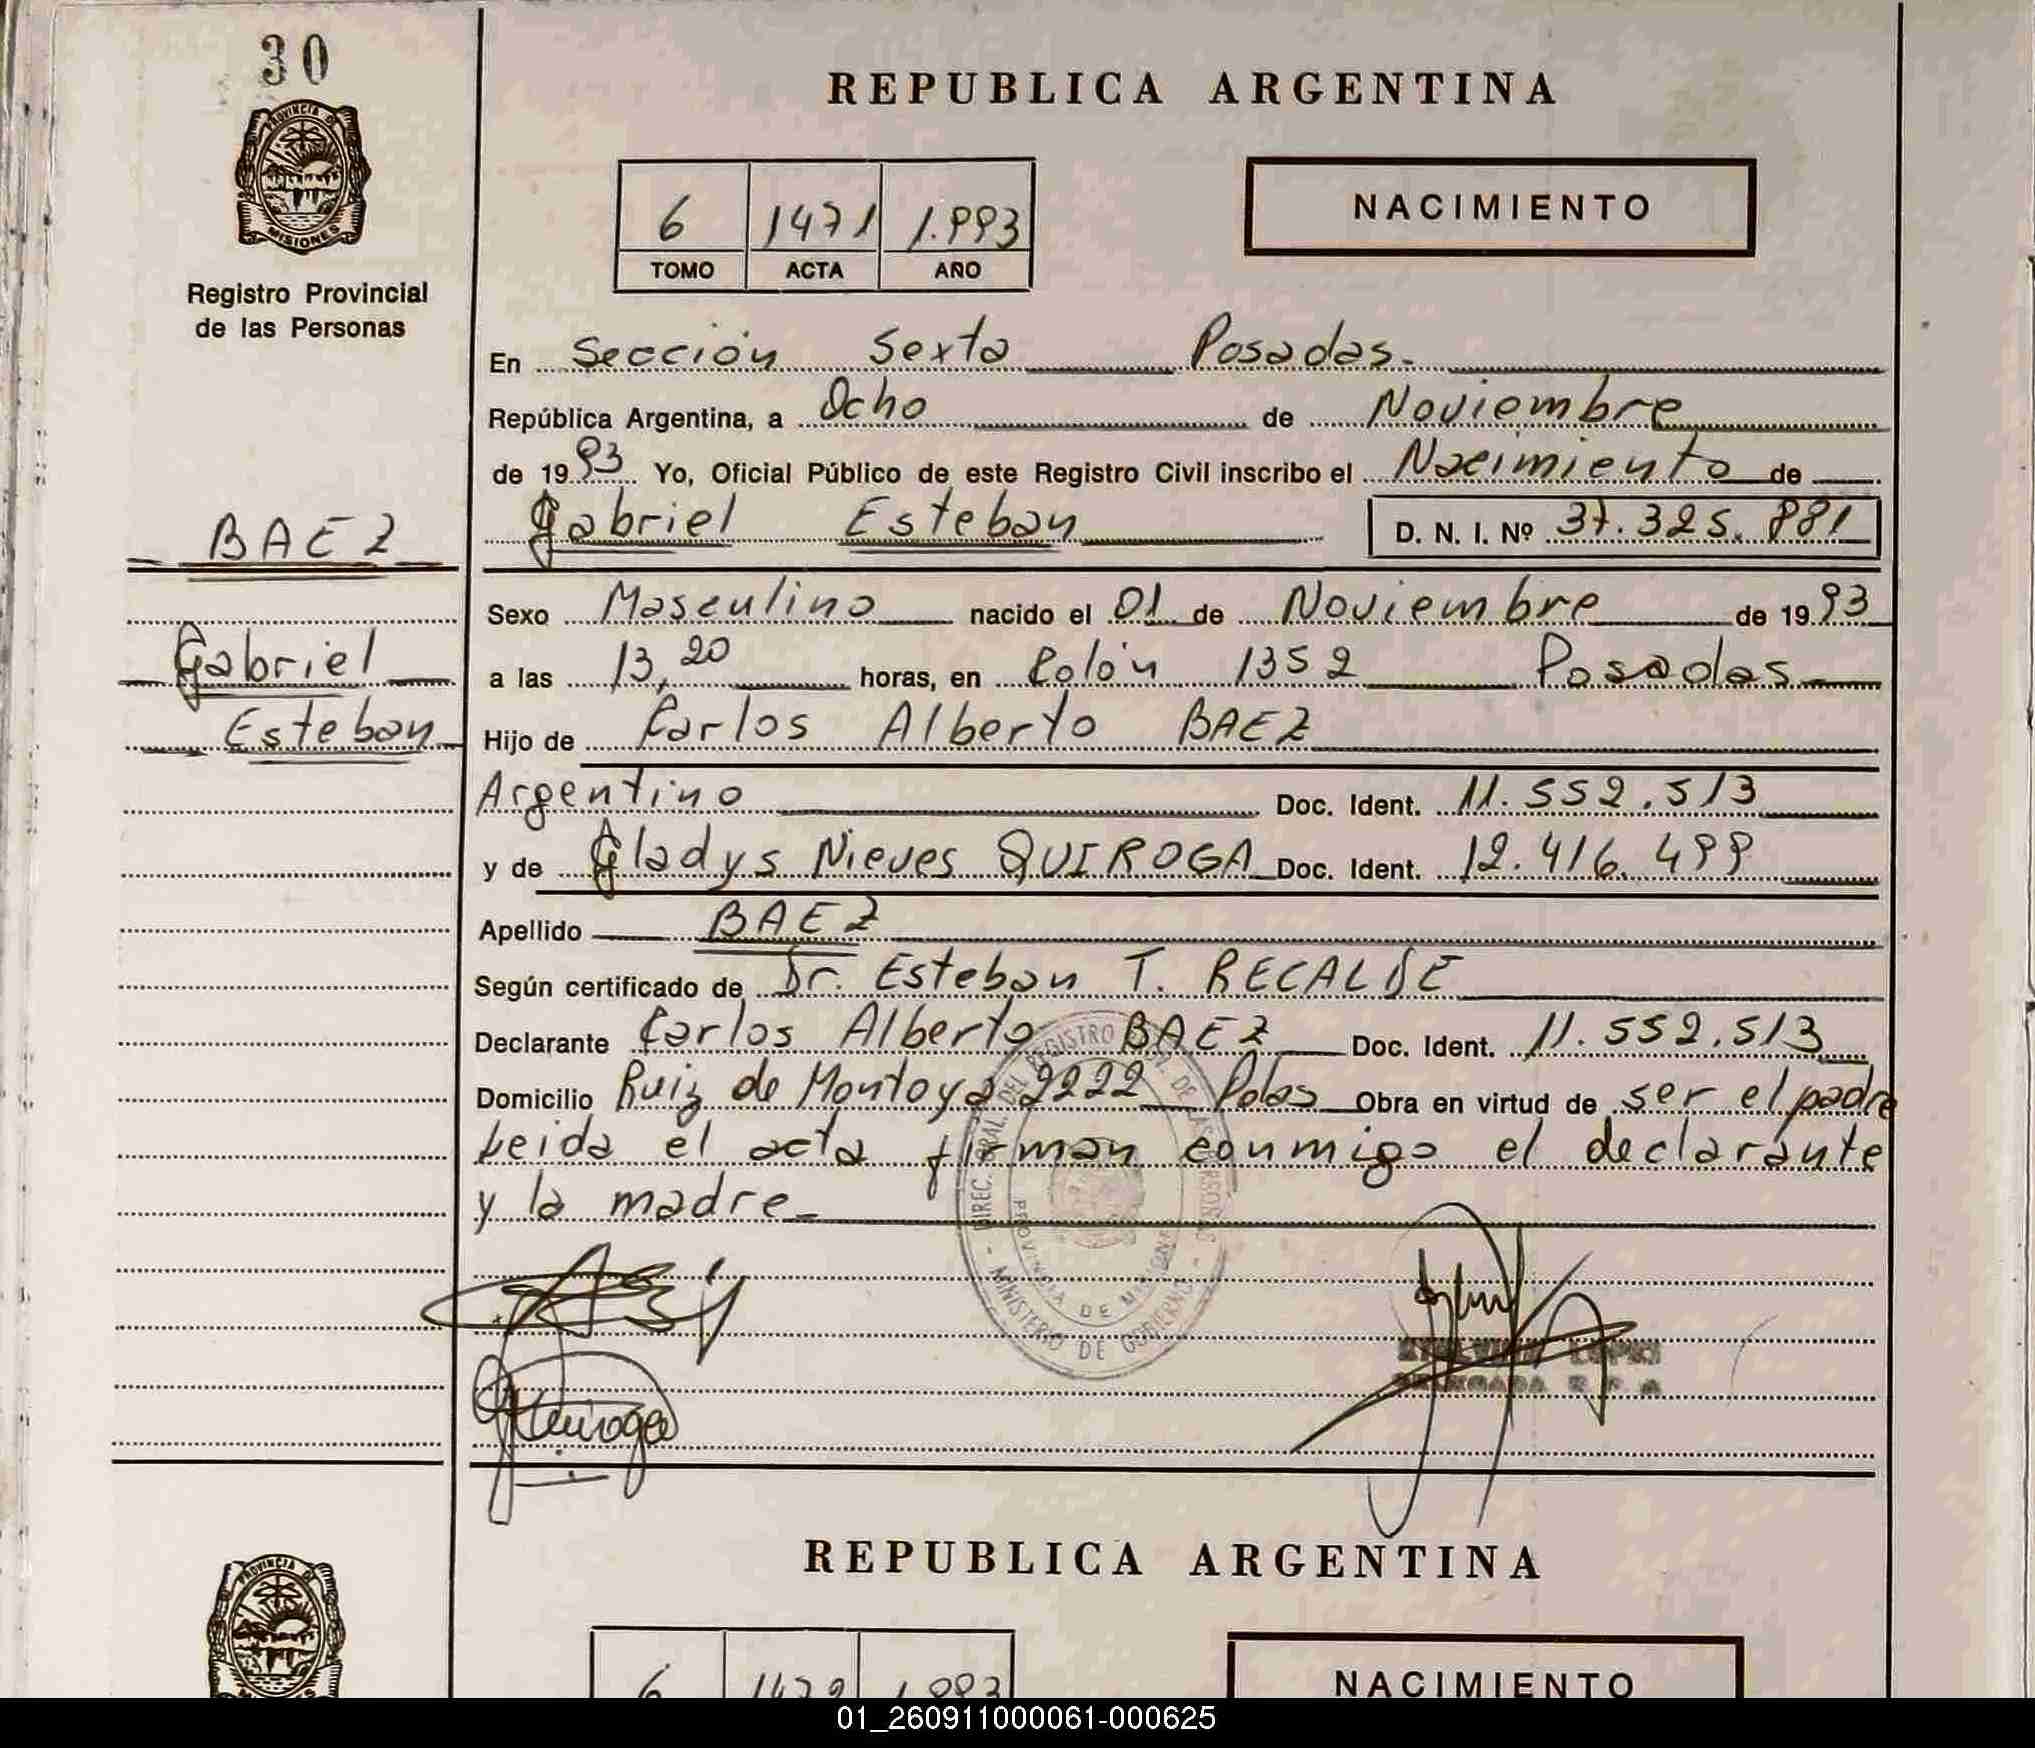 30
REPUBLICA ARGENTINA
PROVINCIA D
MISIONES
Registro Provincial
de las Personas
6 1471 1.993
TOMO ACTA AÑO
NACIMIENTO
En Sección Sexta Posadas.
República Argentina, a Ocho de Noviembre
de 1993 Yo, Oficial Público de este Registro Civil inscribo el Nacimiento de
Gabriel Esteban D. N. I. Nº 37.325.881
BAEZ
Gabriel
Esteban
Sexo Masculino nacido el 01 de Noviembre de 1993
a las 13,20 horas, en Colón 1352 Posadas
Hijo de Carlos Alberto BAEZ
Argentino Doc. Ident. 11.552.513
y de Gladys Nieves QUIROGA Doc. Ident. 12.416.499
Apellido BAEZ
Según certificado de Dr. Esteban T. RECALDE
Declarante Carlos Alberto BAEZ Doc. Ident. 11.552.513
Domicilio Ruiz de Montoya 2222 Pdas Obra en virtud de ser el padre
Leida el acta firman conmigo el declarante
y la madre
DIREC. GRAL. DEL REGISTRO DE LAS PERSONAS
PROVINCIA DE MISIONES
MINISTERIO DE GOBIERNO
Quiroga
REPUBLICA ARGENTINA
PROVINCIA D
6 1472 1.993
NACIMIENTO
01_260911000061-000625